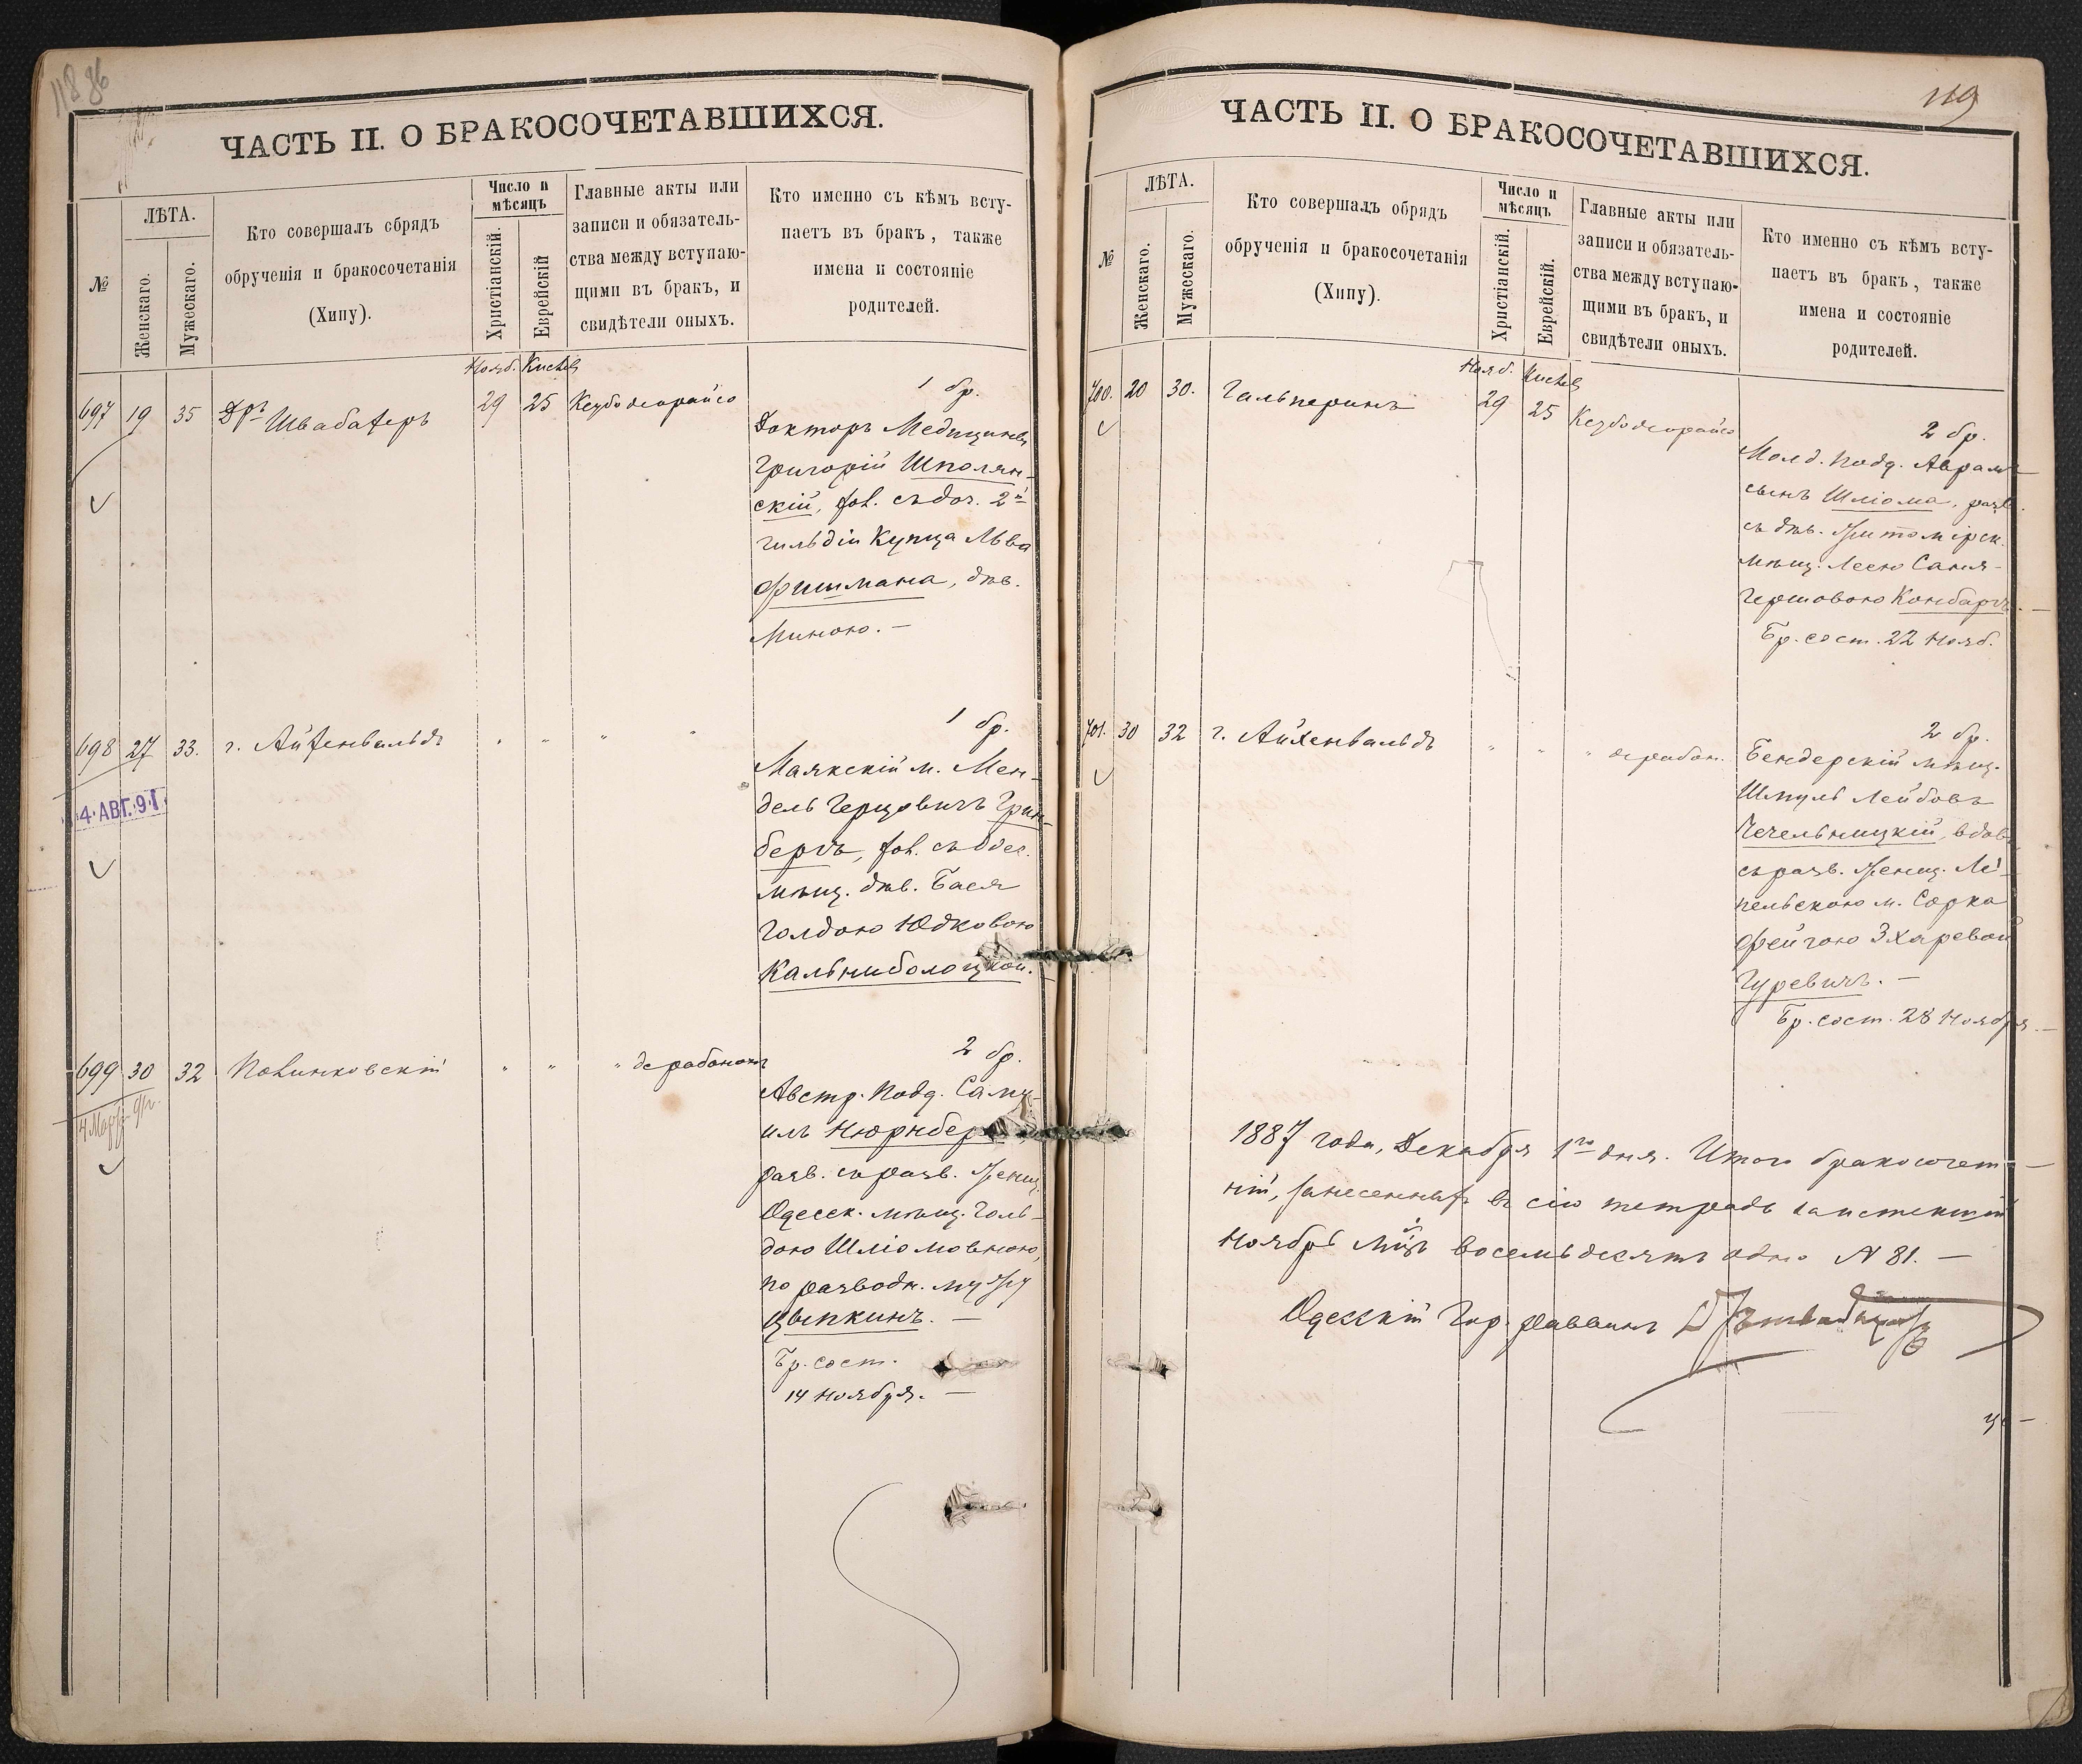 118 86
ЧАСТЬ II. О БРАКОСОЧЕТАВШИХСЯ.
№
ЛѢТА.
Женскаго.
Мужескаго.
Кто совершалъ обрядъ
обрученія и бракосочетанія
(Хипу).
Число и
мѣсяцъ
Христіанскій.
Еврейскій
Главные акты или
записи и обязатель-
ства между вступаю-
щими въ бракъ, и
свидѣтели оныхъ.
Кто именно съ кѣмъ всту-
паетъ въ бракъ, также
имена и состояніе
родителей.
Нояб. Кислев
697 19 35 Дръ Швабахеръ 29 25 Кезубо деорайсо
1 бр.
Докторъ Медицины
Григорій Шполян-
скій, хол. съ доч. 2й
гильдіи Купца Льва
Фишмана, дѣв.
Миною. —
698 27 33. г. Айхенвальдъ " " " "
4·АВГ.91
1 бр.
Маякскій м. Мен-
дель Герцовичъ Грин-
бергъ, хол. съ Одес.
мѣщ. дѣв. Бася
Голдою Юдковою
Кальниболоцкой.
699 30 32 Повинковскій " " " дерабонон
4 Мар.
2 бр.
Австр. Подд. Саму-
илъ Нюрнбер
разв. съ разв. женщ.
Одесск. мѣщ. Голь-
дою Шліомовною,
по разводн. мужу
Цыпкинъ. —
Бр. сост.
14 Ноября. —
119
ЧАСТЬ II. О БРАКОСОЧЕТАВШИХСЯ.
№
ЛѢТА.
Женскаго.
Мужескаго.
Кто совершалъ обрядъ
обрученія и бракосочетанія
(Хипу).
Число и
мѣсяцъ
Христіанскій.
Еврейскій.
Главные акты или
записи и обязатель-
ства между вступаю-
щими въ бракъ, и
свидѣтели оныхъ.
Кто именно съ кѣмъ всту-
паетъ въ бракъ, также
имена и состояніе
родителей.
Нояб. Кислев
700. 20 30. Гальперинъ 29 25 Кезубо деорайсо
2 бр.
Молд. подд. Аврамъ
сынъ Шліома, разв.
съ дѣв. Житомірск.
мѣщ. Леею Саня-
Гершовою Конбаргъ. —
Бр. сост. 22 Нояб.
701. 30 32 г. Айхенвальдъ " " " дерабон.
2 бр.
Бендерскій мѣщ.
Шмуль Лейбовъ
Чечельницкій, вдов.
съ разв. женщ. Ле-
пельскою м. Сорка
Фейгою Зхаревой
Гуревичъ. —
Бр. сост. 28 Ноября. —
1887 года, Декабря 1го дня. Итого бракосочета-
ній, занесенныхъ въ сію тетрадь за истекшій
Ноябрь Мцъ восемьдесятъ одно N 81. —
Одесскій Гор. Раввинъ